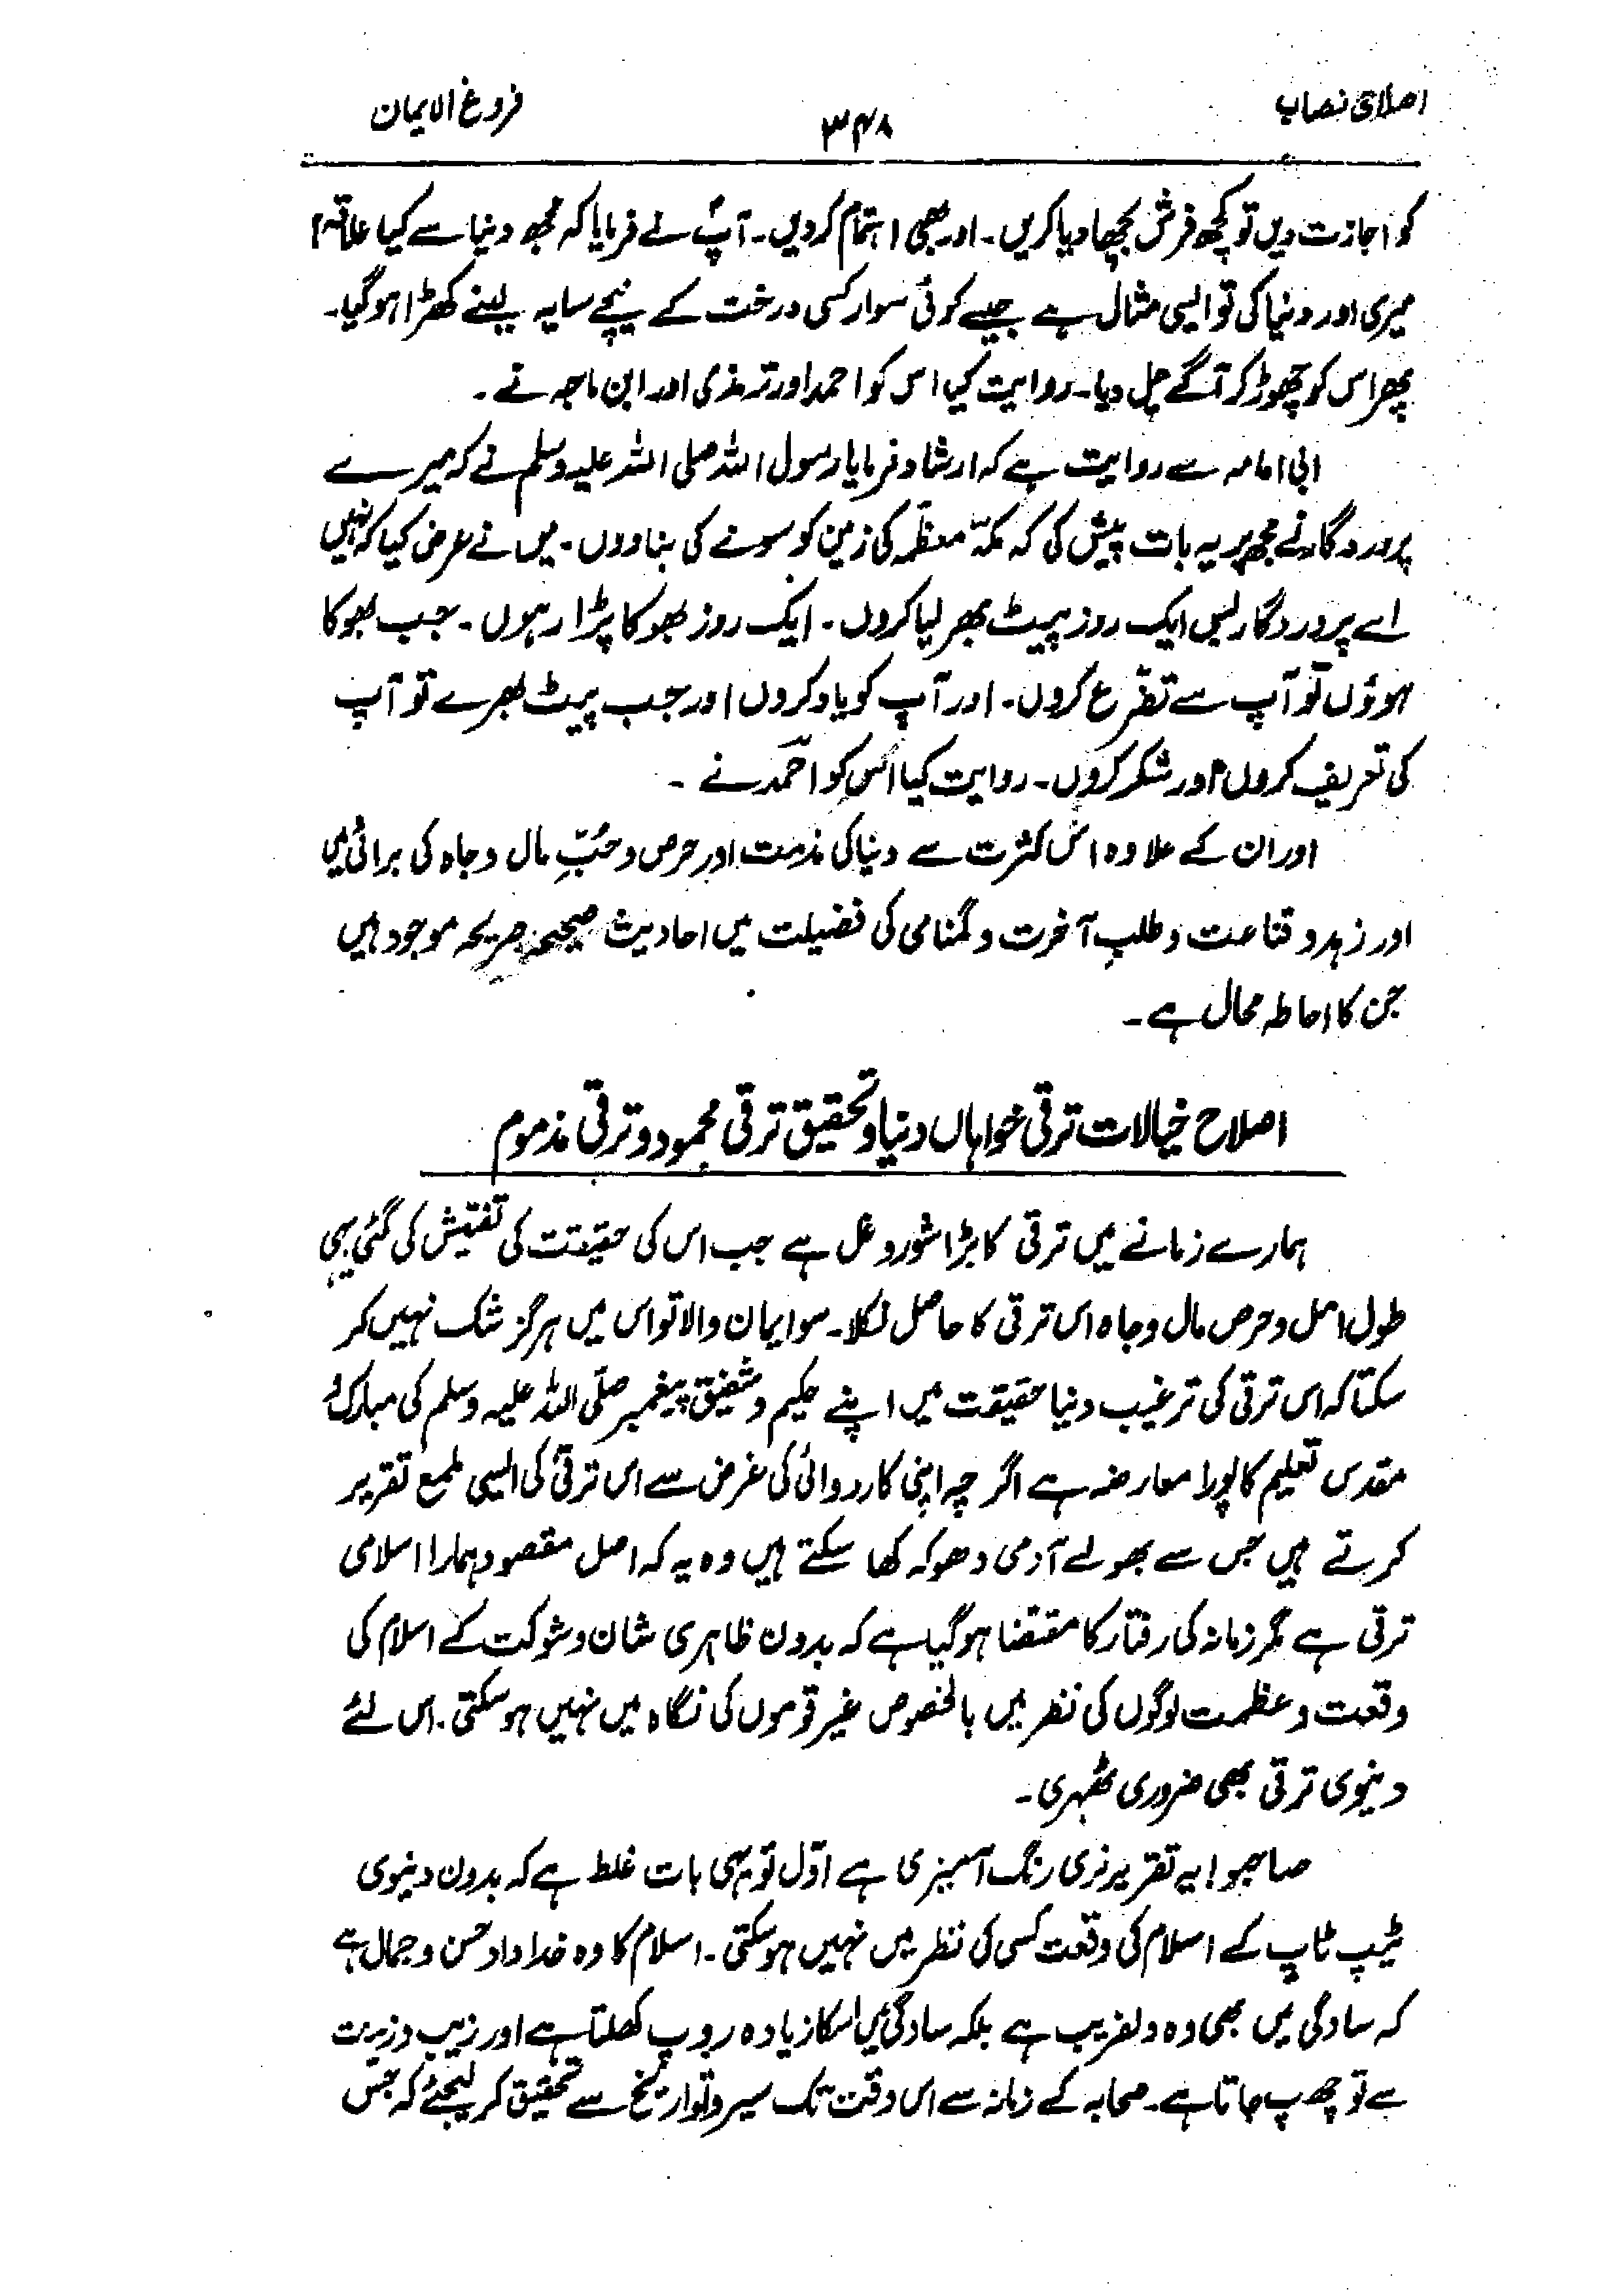 اصلاحی نصاب
۳۴۸
فروغ الایمان
کو اجازت دیں تو کچھ فرش بچھا دیا کریں۔ اور بھی اہتمام کر دیں۔ آپؐ نے فرمایا کہ مجھ دنیا سے کیا علاقہ؟
میری اور دنیا کی تو ایسی مثال ہے جیسے کوئی سوار کسی درخت کے نیچے سایہ لینے کھڑا ہو گیا۔
پھر اس کو چھوڑ کر آگے چل دیا۔ روایت کیا اس کو احمد اور ترمذی اور ابن ماجہ نے۔
ابی امامہ سے روایت ہے کہ ارشاد فرمایا رسول اللہ صلی اللہ علیہ وسلم نے کہ میرے
پروردگار نے مجھ پر یہ بات پیش کی کہ مکّہ معظّمہ کی زمین کو سونے کی بنا دوں۔ میں نے عرض کیا کہ نہیں
اے پروردگار بس ایک روز پیٹ بھر لیا کروں۔ ایک روز بھوکا پڑا رہوں۔ جب بھوکا
ہوؤں تو آپ سے تضرّع کروں۔ اور آپ کو یاد کروں اور جب پیٹ بھرے تو آپ
کی تعریف کروں اور شکر کروں۔ روایت کیا اس کو احمد نے۔
اور ان کے علاوہ اس کثرت سے دنیا کی مذمت اور حرص و حبِّ مال و جاہ کی برائی میں
اور زہد و قناعت و طلبِ آخرت و گمنامی کی فضیلت میں احادیث صحیحہ صریحہ موجود ہیں
جن کا احاطہ محال ہے۔
اصلاح خیالات ترقی خواہاں دنیا و تحقیق ترقی محمود و ترقی مذموم
ہمارے زمانے میں ترقی کا بڑا شور و غل ہے جب اس کی حقیقت کی تفتیش کی گئی یہی
طول امل و حرص مال و جاہ اس ترقی کا حاصل نکلا۔ سو ایمان والا تو اس میں ہرگز شک نہیں کر
سکتا کہ اس ترقی کی ترغیب دنیا حقیقت میں اپنے حکیم و شفیق پیغمبر صلّی اللہ علیہ وسلم کی مبارک و
مقدس تعلیم کا پورا معارضہ ہے اگرچہ اپنی کارروائی کی غرض سے اس ترقی کی ایسی ملمع تقریر
کرتے ہیں جس سے بھولے آدمی دھوکہ کھا سکتے ہیں وہ یہ کہ اصل مقصود ہمارا اسلامی
ترقی ہے مگر زمانہ کی رفتار کا مقتضا ہو گیا ہے کہ بدون ظاہری شان و شوکت کے اسلام کی
وقعت و عظمت لوگوں کی نظر میں بالخصوص غیر قوموں کی نگاہ میں نہیں ہو سکتی۔ اس لئے
دینوی ترقی بھی ضروری ٹھہری۔
صاحبو! یہ تقریر نری رنگ آمیزی ہے اوّل تو یہی بات غلط ہے کہ بدون دینوی
ٹیپ ٹاپ کے اسلام کی وقعت کسی کی نظر میں نہیں ہو سکتی۔ اسلام کا وہ خداداد حسن و جمال ہے
کہ سادگی میں بھی وہ دلفریب ہے بلکہ سادگی میں اسکا زیادہ روپ کھلتا ہے اور زیب و زینت
سے تو چھپ جاتا ہے۔ صحابہ کے زمانہ سے اس وقت تک سیر و تواریخ سے تحقیق کر لیجئے کہ جس